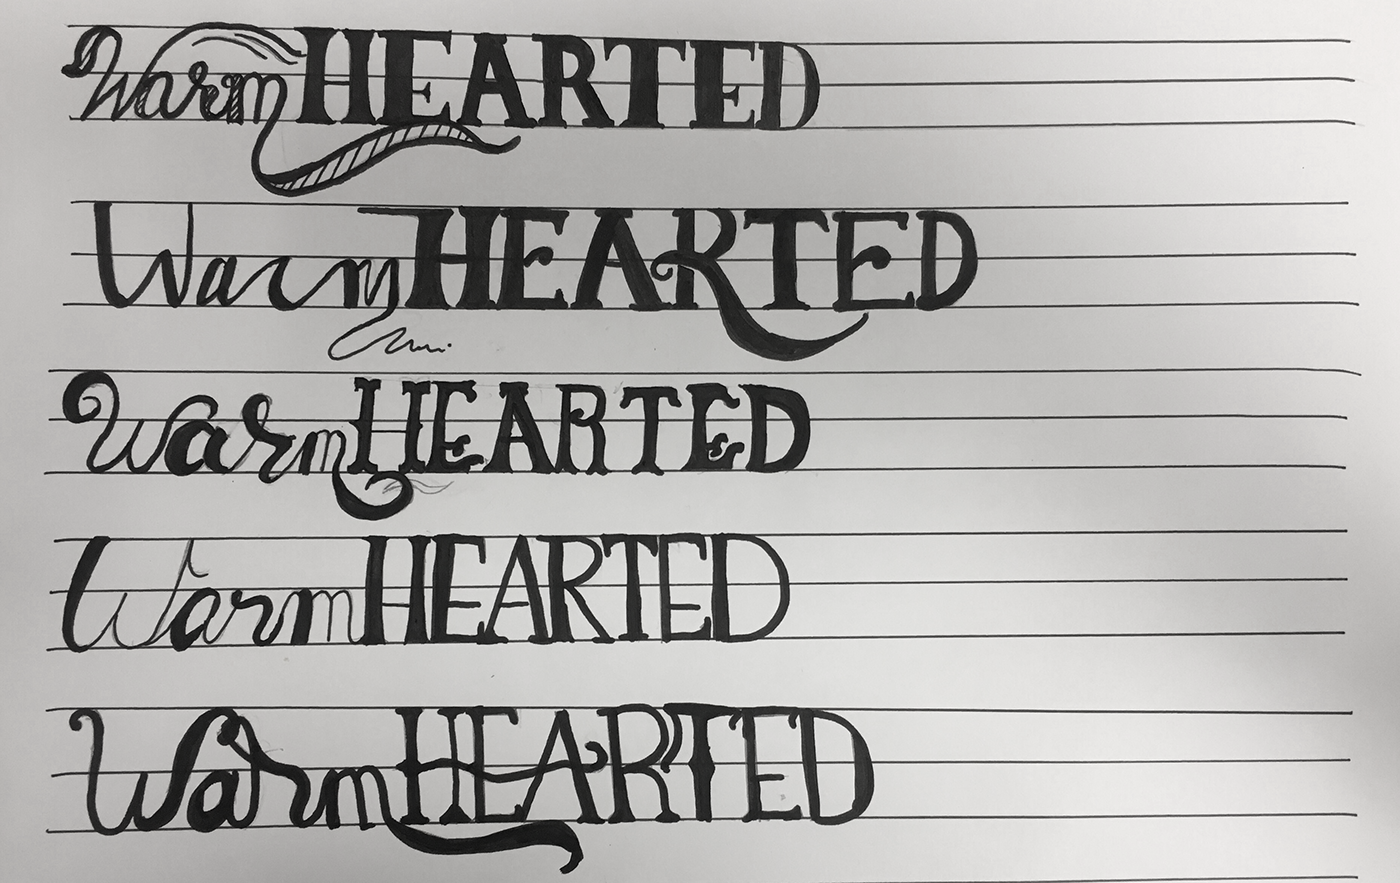 Warm HEARTED
Warm HEARTED
Warm HEARTED
Warm HEARTED
Warm HEARTED